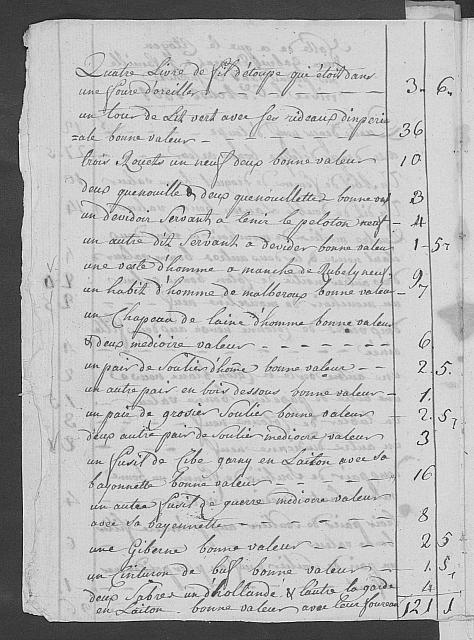 Quatre Livre de fil d'étoupe qui étoit dans
une foure d'oreiller - - - - - - 3 - 6 -
un tour de Lit vert avec ses rideaux d'inperi
=ale bonne valeur - - - - - - 36
trois Rouets un neuf deux bonne valeur 10
deux quenouille & deux quenouillette bonne val 3
un devidoir servant a tenir le peloton neuf - 4
un autre dit servant a devider bonne valeur 1 - 5
une veste d'homme a manche de neuf
un habit d'homme de malberoux bonne valeur - 9
un Chapeau de laine d'homme bonne valeur
& deux mediocre valeur - - - - - - - 6
un pair de soulies d'hōme bonne valeur - - 2 - 5.
un autre pair en bois dessous bonne valeur - 1.
un pair de grosier soulies bonne valeur - 2. 5
deux autre pair de soulie mediocre valeur 3
un fusil de garny en Laiton avec sa
bayonnette bonne valeur - - - - - - 16
un autre fusil de guerre mediocre valeur
avec sa bayennette - - - - - - - 8
une Giberne bonne valeur - - - - 2 5
un Cinturon de buf bonne valeur - - 1. 5
deux Sabres un d'hollande & l'autre la garde 4
en Laiton. bonne valeur avec leur foureau 121 1